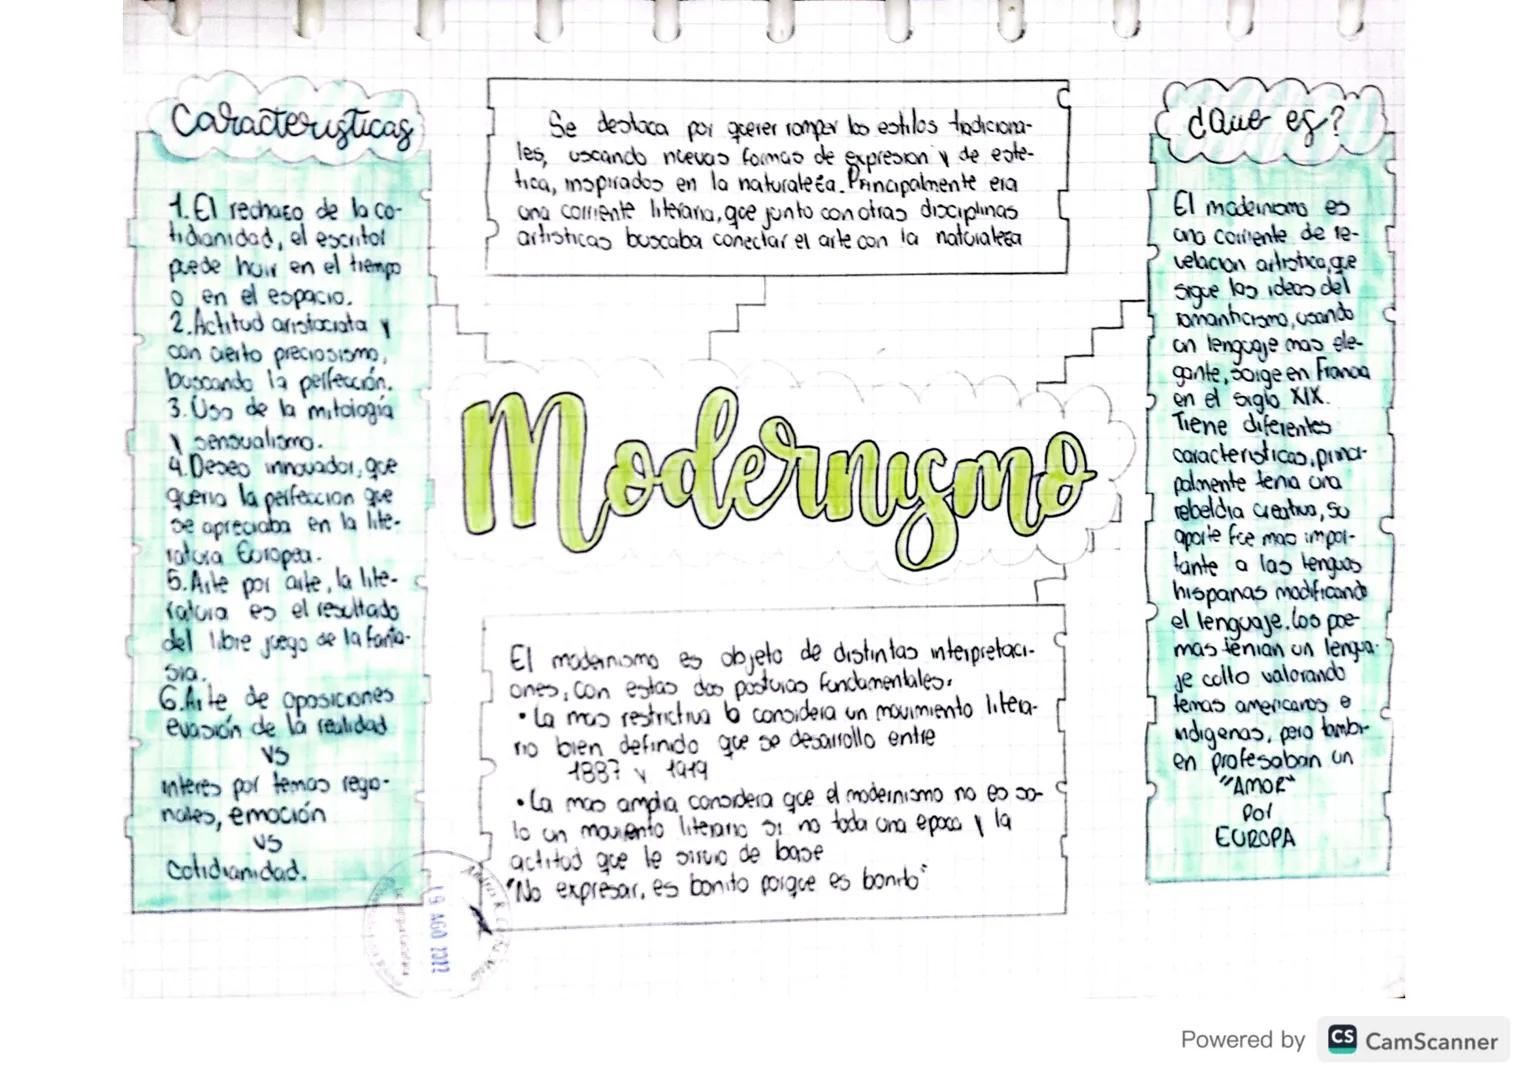 Caracteristicas
1. El rechazo de la co-
tidianidad, el escritor
puede huir en el tiempo
o en el espacio.
2. Actitud aristociata y
con cierto preciosismo,
buscando la perfección.
3. Uso de la mitologia
y sensualismo.
4. Deseo innovador, que
queria la perfeccion que
se apreciaba en la lite-
ratura Europea.
5. Arte por arte, la lite-
ratura es el resultado
del libre juego de la fanta-
sia.
6. Arte de oposiciones
evasión de la realidad
VS
interes por temas regio-
nales, emoción
VS
Cotidianidad.
Se destaca por querer romper los estilos tradiciona-
les, uscando nuevas formas de expresion y de este-
tica, inspirados en la naturaleza. Principalmente era
una corriente literaria, que junto con otras disciplinas
artisticas buscaba conectar el arte con la naturaleza
Modernismo
El modernismo es objeto de distintas interpretaci-
ones, con estas dos posturas fundamentales.
• La mas restrictiva lo considera un movimiento litera-
rio bien definido que se desarrollo entre
1887 y 1919
• La mas amplia considera que el modernismo no es so-
lo un moviento literario si no toda una epoca y la
actitud que le sirvio de base
"No expresar, es bonito porque es bonito"
¿Que es?
El modernismo es
una corriente de re-
velacion artistica, que
sigue las ideas del
romanticismo, usando
un lenguaje mas ele-
gante, surge en Francia
en el siglo XIX.
Tiene diferentes
caracteristicas, princi-
palmente tenia una
rebeldia creativa, su
aporte fue mas impor-
tante a las lenguas
hispanas modificando
el lenguaje. Los poe-
mas tenian un lengua-
je culto valorando
temas americanos e
indigenas, pero tambi-
en profesaban un
"AMOR"
Por
EUROPA
19 AGO 2022
Powered by CS CamScanner